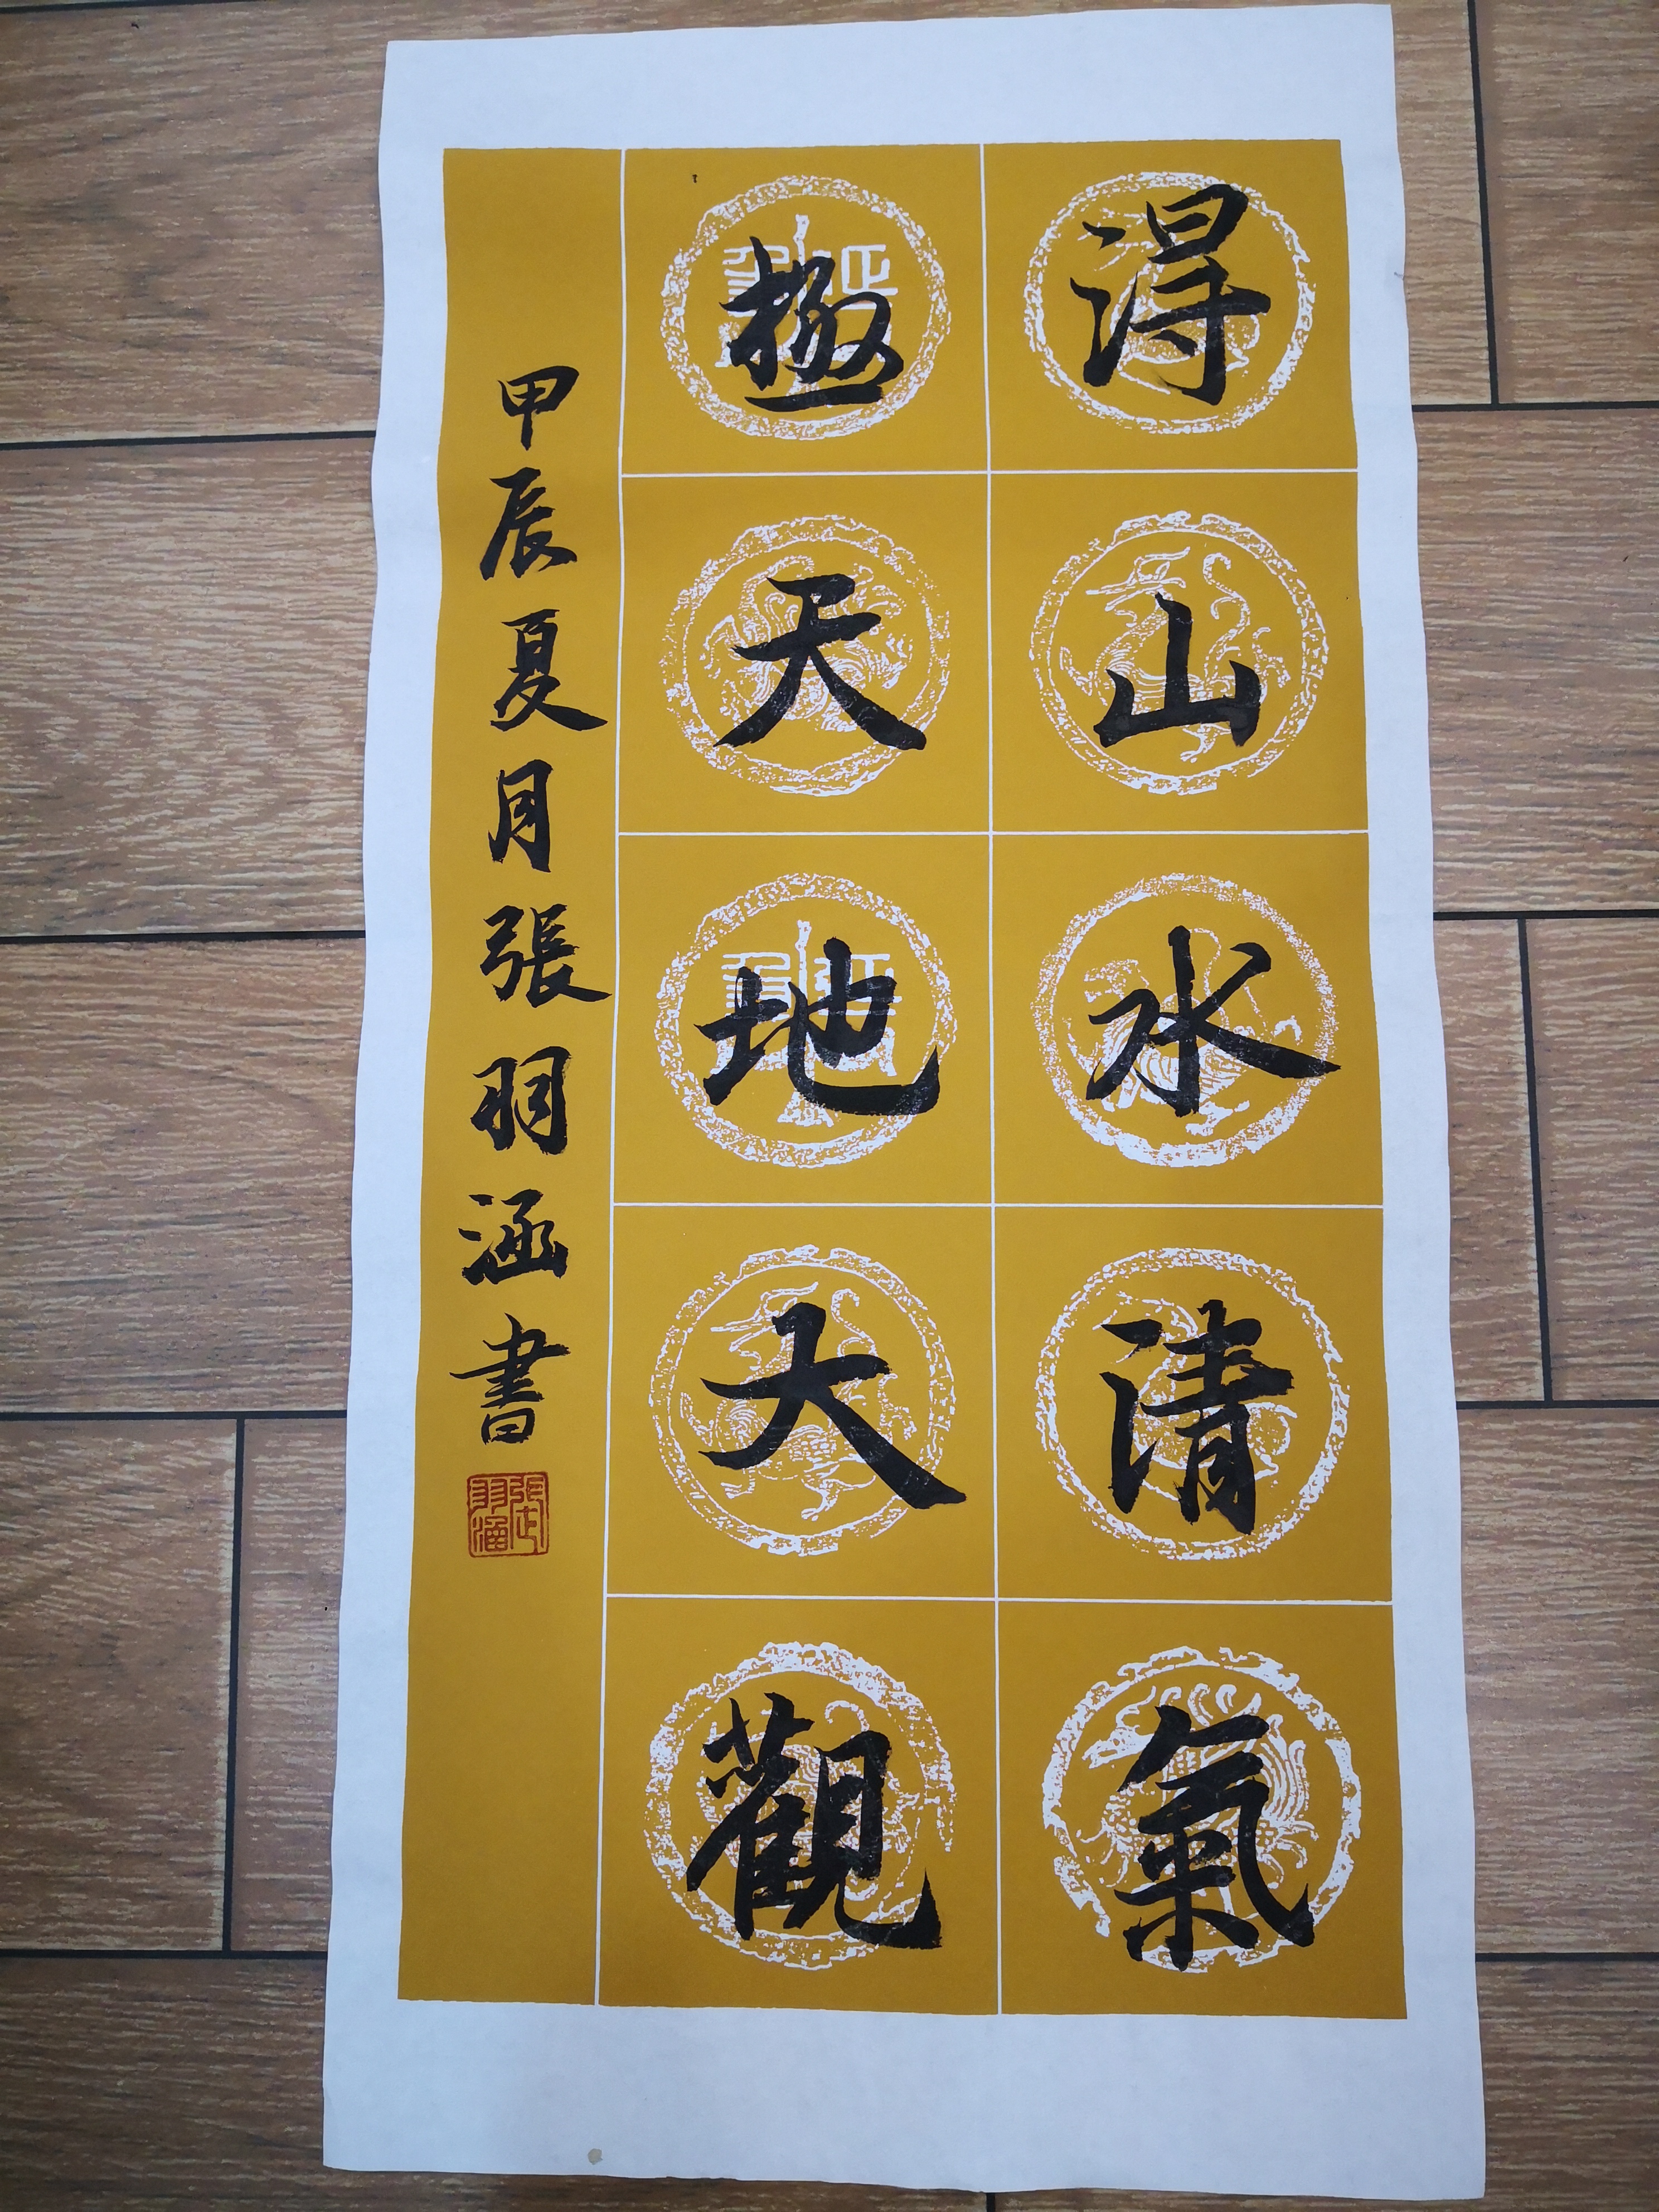 淂山水清氣
極天地大觀
甲辰夏月張羽涵書
張氏羽涵